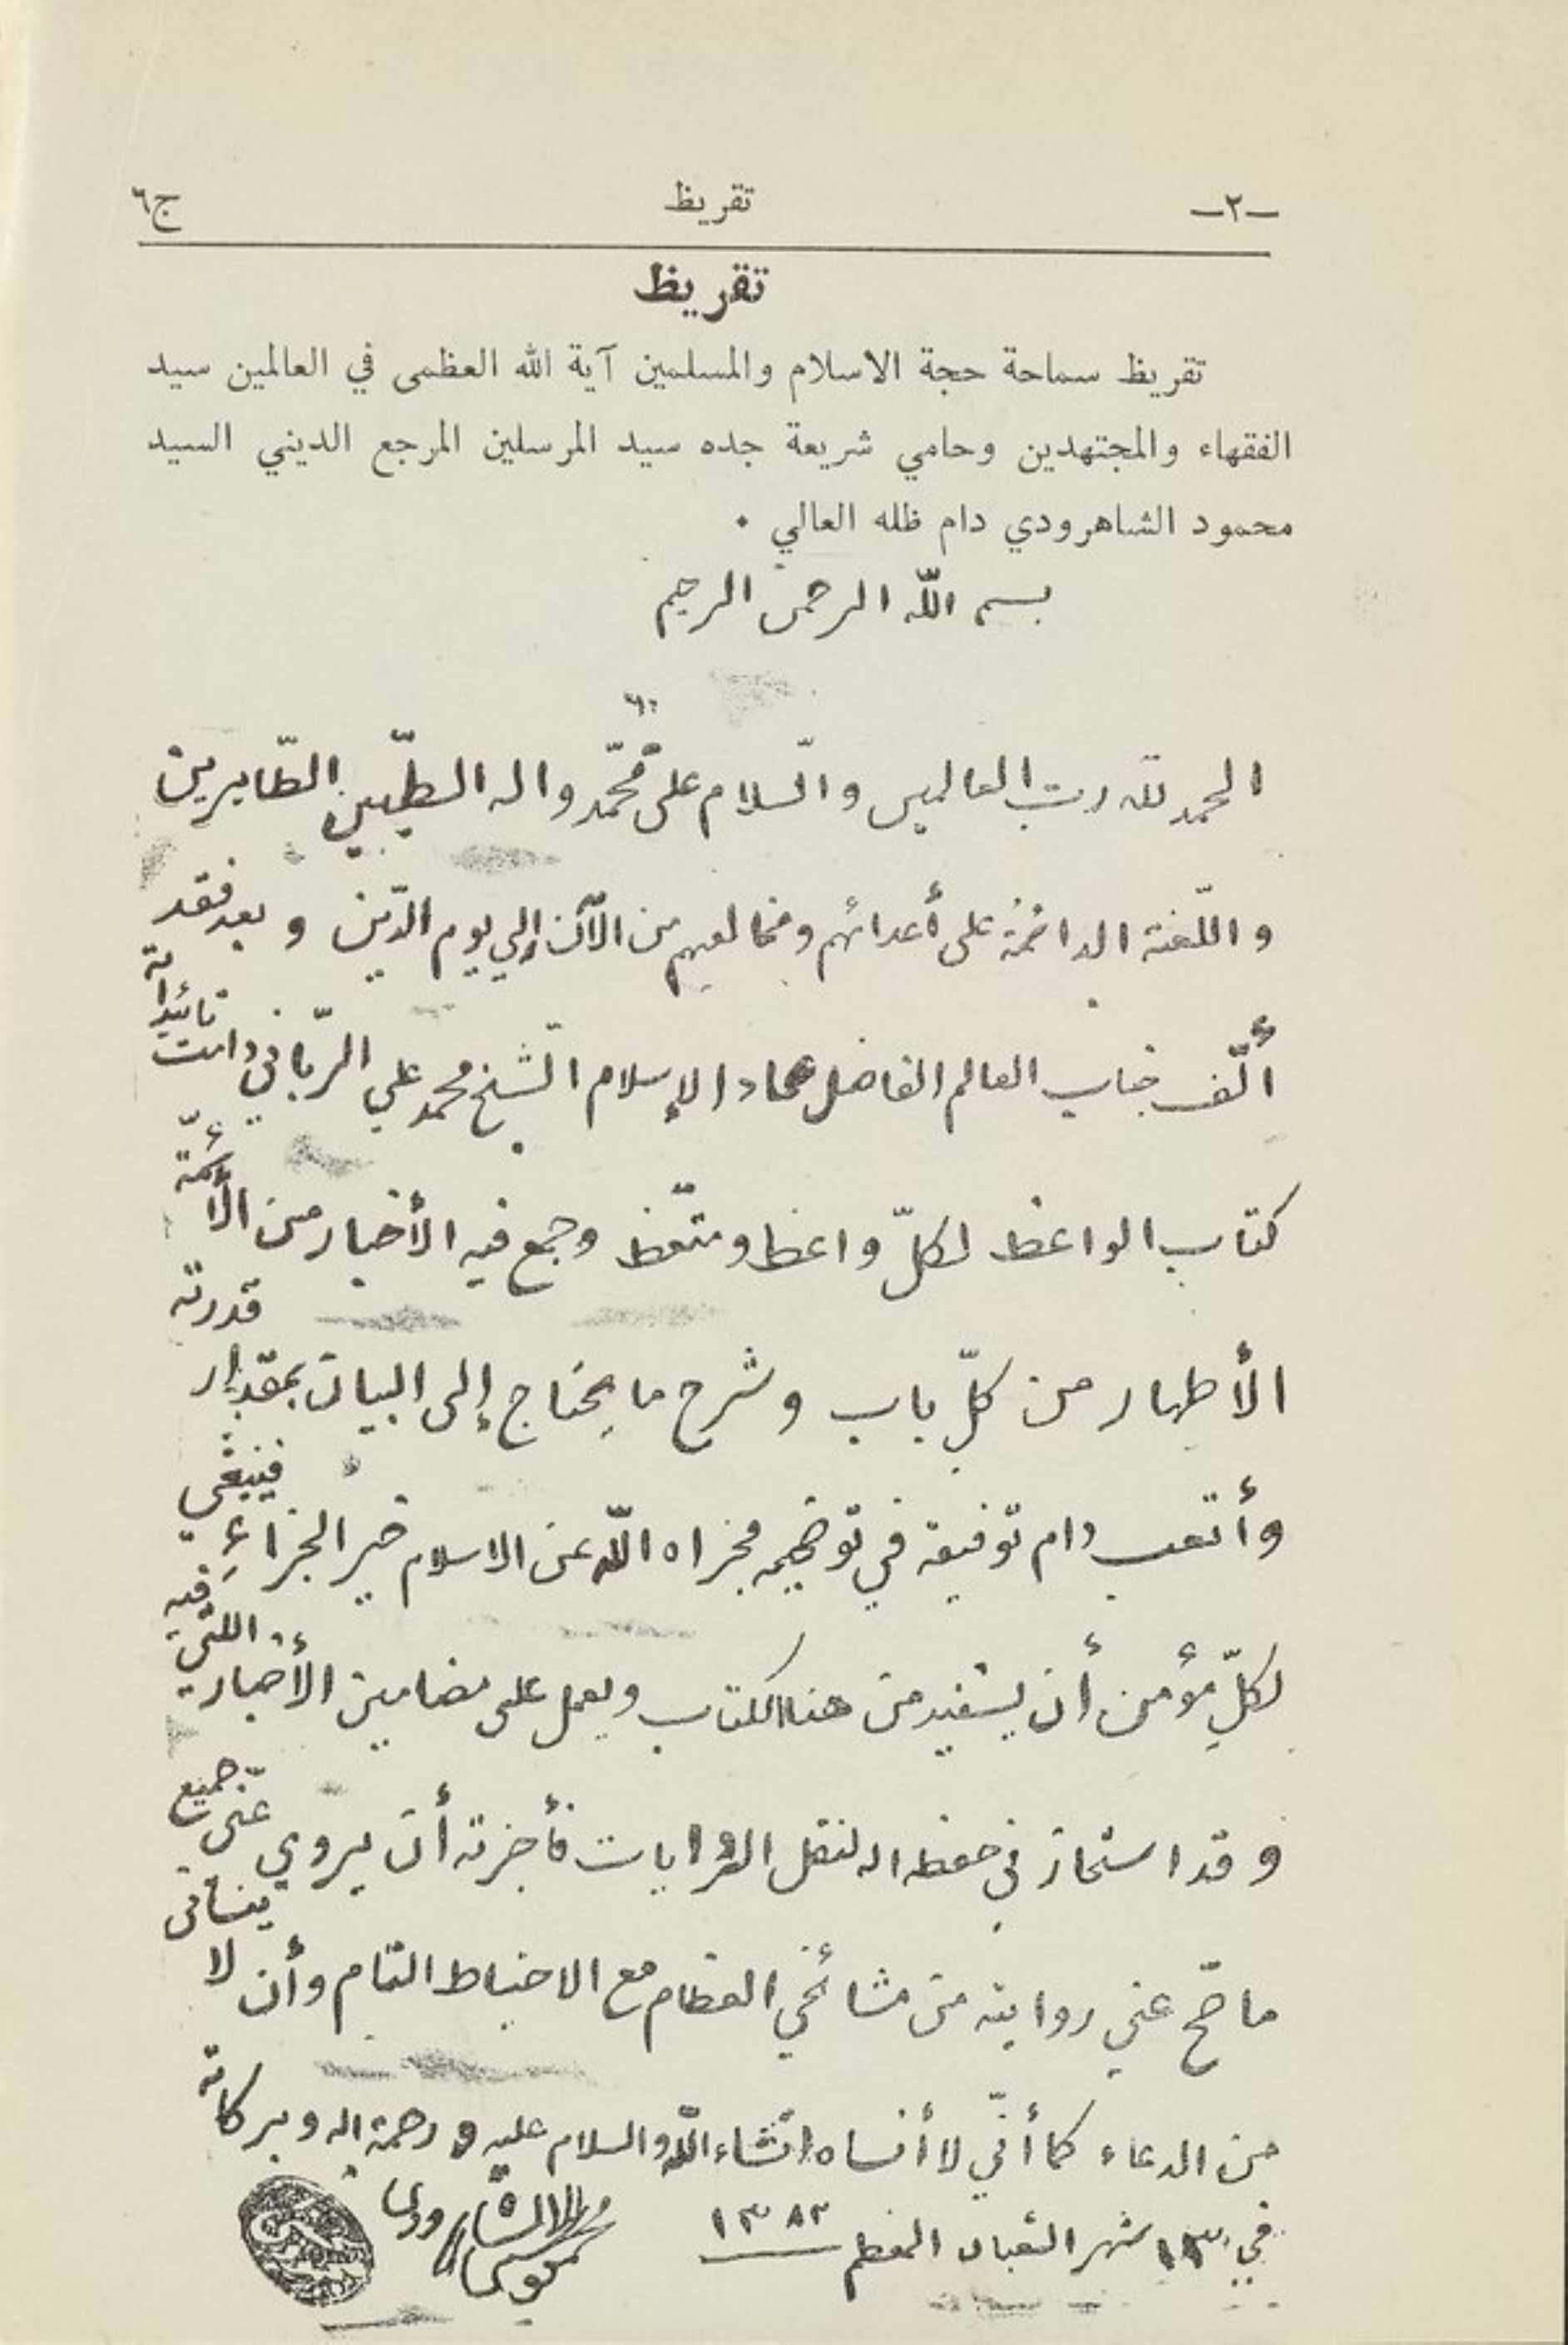 -٢- تقريظ ج٦
تقريظ
تقريظ سماحة حجة الاسلام والمسلمين آية الله العظمى في العالمين سيد
الفقهاء والمجتهدين وحامي شريعة جده سيد المرسلين المرجع الديني السيد
محمود الشاهرودي دام ظله العالي .
بسم الله الرحمن الرحيم
الحمد لله ربّ العالمين والسّلام على محمّد واله الطيّبين الطّاهرين
واللّعنة الدائمة على أعدائهم ومخالفيهم من الآن إلى يوم الدّين وبعد فقد
ألّف جناب العالم الفاضل عماد الإسلام الشّيخ محمد علي الرّبّاني دامت تائيداته
كتاب الواعظ لكلّ واعظ ومتّعظ وجمع فيه الأخبار من الأئمّة
الأطهار من كلّ باب وشرح ما يحتاج إلى البيان بمقدار قدرته
وأتعب دام توفيقه في توضيحه فجزاه اللّه عن الاسلام خير الجزاء فينبغي
لكلّ مؤمن أن يستفيد من هذا الكتاب ويعمل على مضامين الأخبار اللتي فيه
وقد استجاز في حفظه الله لنقل الروايات فأجزته أن يروي عنّى جميع
ما صحّ عني روايته من مشائخي العظام مع الاحتياط التام وأن لا ينساني
من الدعاء كما أنّي لا أنساه انشاء اللّه والسلام عليه ورحمة الله وبركاته
في ١٣ شهر الشعبان المعظم ١٣٨٣
محمود الحسيني الشاهرودي